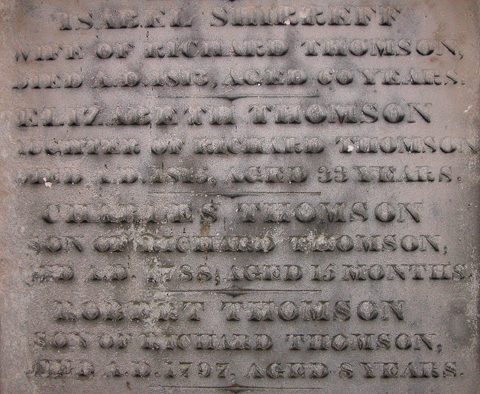 ISABEL SHIRREFF
WIFE OF RICHARD THOMSON,
DIED A.D. 1813, AGED 60 YEARS.
ELIZABETH THOMSON
DAUGHTER OF RICHARD THOMSON
DIED A.D. 1815, AGED 33 YEARS.
CHARLES THOMSON
SON OF RICHARD THOMSON,
DIED A.D. 1788, AGED 15 MONTHS.
ROBERT THOMSON
SON OF RICHARD THOMSON,
DIED A.D. 1797, AGED 8 YEARS.